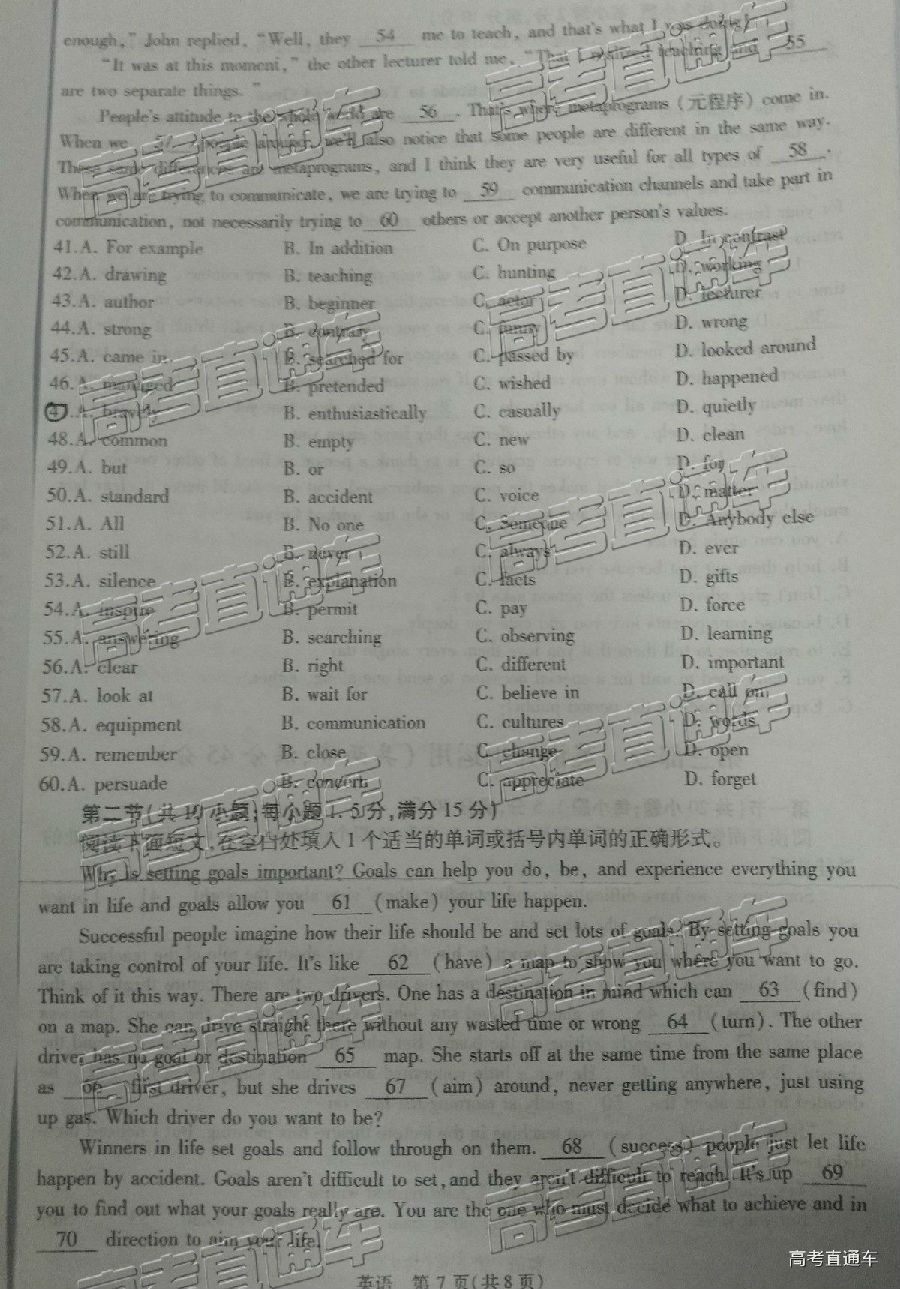 enough," John replied, "Well, they 54 me to teach, and that's what I was doing."
"It was at this moment," the other lecturer told me, "That I teaching and 55
are two separate things."
People's attitude to the whole world are 56 . That's where metaprograms (元程序) come in.
When we 57 people around, we'll also notice that some people are different in the same way.
These differences are metaprograms, and I think they are very useful for all types of 58 .
When we are trying to communicate, we are trying to 59 communication channels and take part in
communication, not necessarily trying to 60 others or accept another person's values.
41.A. For example B. In addition C. On purpose D. In contrast
42.A. drawing B. teaching C. hunting D. working
43.A. author B. beginner C. actor D. lecturer
44.A. strong B. contrary C. funny D. wrong
45.A. came in B. searched for C. passed by D. looked around
46.A. managed B. pretended C. wished D. happened
47.A. bravely B. enthusiastically C. casually D. quietly
48.A. common B. empty C. new D. clean
49.A. but B. or C. so D. for
50.A. standard B. accident C. voice D. matter
51.A. All B. No one C. Someone D. Anybody else
52.A. still B. never C. always D. ever
53.A. silence B. explanation C. facts D. gifts
54.A. inspire B. permit C. pay D. force
55.A. answering B. searching C. observing D. learning
56.A. clear B. right C. different D. important
57.A. look at B. wait for C. believe in D. call on
58.A. equipment B. communication C. cultures D. words
59.A. remember B. close C. change D. open
60.A. persuade B. concern C. appreciate D. forget
第二节(共10小题;每小题1.5分,满分15分)
阅读下面短文,在空白处填入1个适当的单词或括号内单词的正确形式。
Why is setting goals important? Goals can help you do, be, and experience everything you
want in life and goals allow you 61 (make) your life happen.
Successful people imagine how their life should be and set lots of goals. By setting goals you
are taking control of your life. It's like 62 (have) a map to show you where you want to go.
Think of it this way. There are two drivers. One has a destination in mind which can 63 (find)
on a map. She can drive straight there without any wasted time or wrong 64 (turn). The other
driver has no goal or destination 65 map. She starts off at the same time from the same place
as 66 first driver, but she drives 67 (aim) around, never getting anywhere, just using
up gas. Which driver do you want to be?
Winners in life set goals and follow through on them. 68 (success) people just let life
happen by accident. Goals aren't difficult to set, and they aren't difficult to reach. It's up 69
you to find out what your goals really are. You are the one who must decide what to achieve and in
70 direction to aim your life.
英语 第7页(共8页)
高考直通车